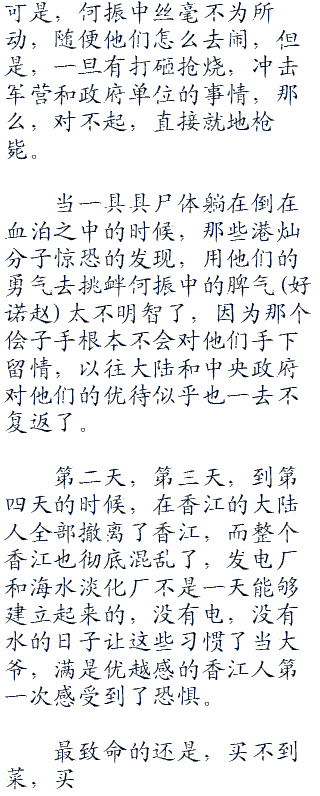 可是，何振中丝毫不为所
动，随便他们怎么去闹，但
是，一旦有打砸抢烧，冲击
军营和政府单位的事情，那
么，对不起，直接就地枪
毙。
当一具具尸体躺在倒在
血泊之中的时候，那些港灿
分子惊恐的发现，用他们的
勇气去挑衅何振中的脾气(好
诺赵)太不明智了，因为那个
侩子手根本不会对他们手下
留情，以往大陆和中央政府
对他们的优待似乎也一去不
复返了。
第二天，第三天，到第
四天的时候，在香江的大陆
人全部撤离了香江，而整个
香江也彻底混乱了，发电厂
和海水淡化厂不是一天能够
建立起来的，没有电，没有
水的日子让这些习惯了当大
爷，满是优越感的香江人第
一次感受到了恐惧。
最致命的还是，买不到
菜，买